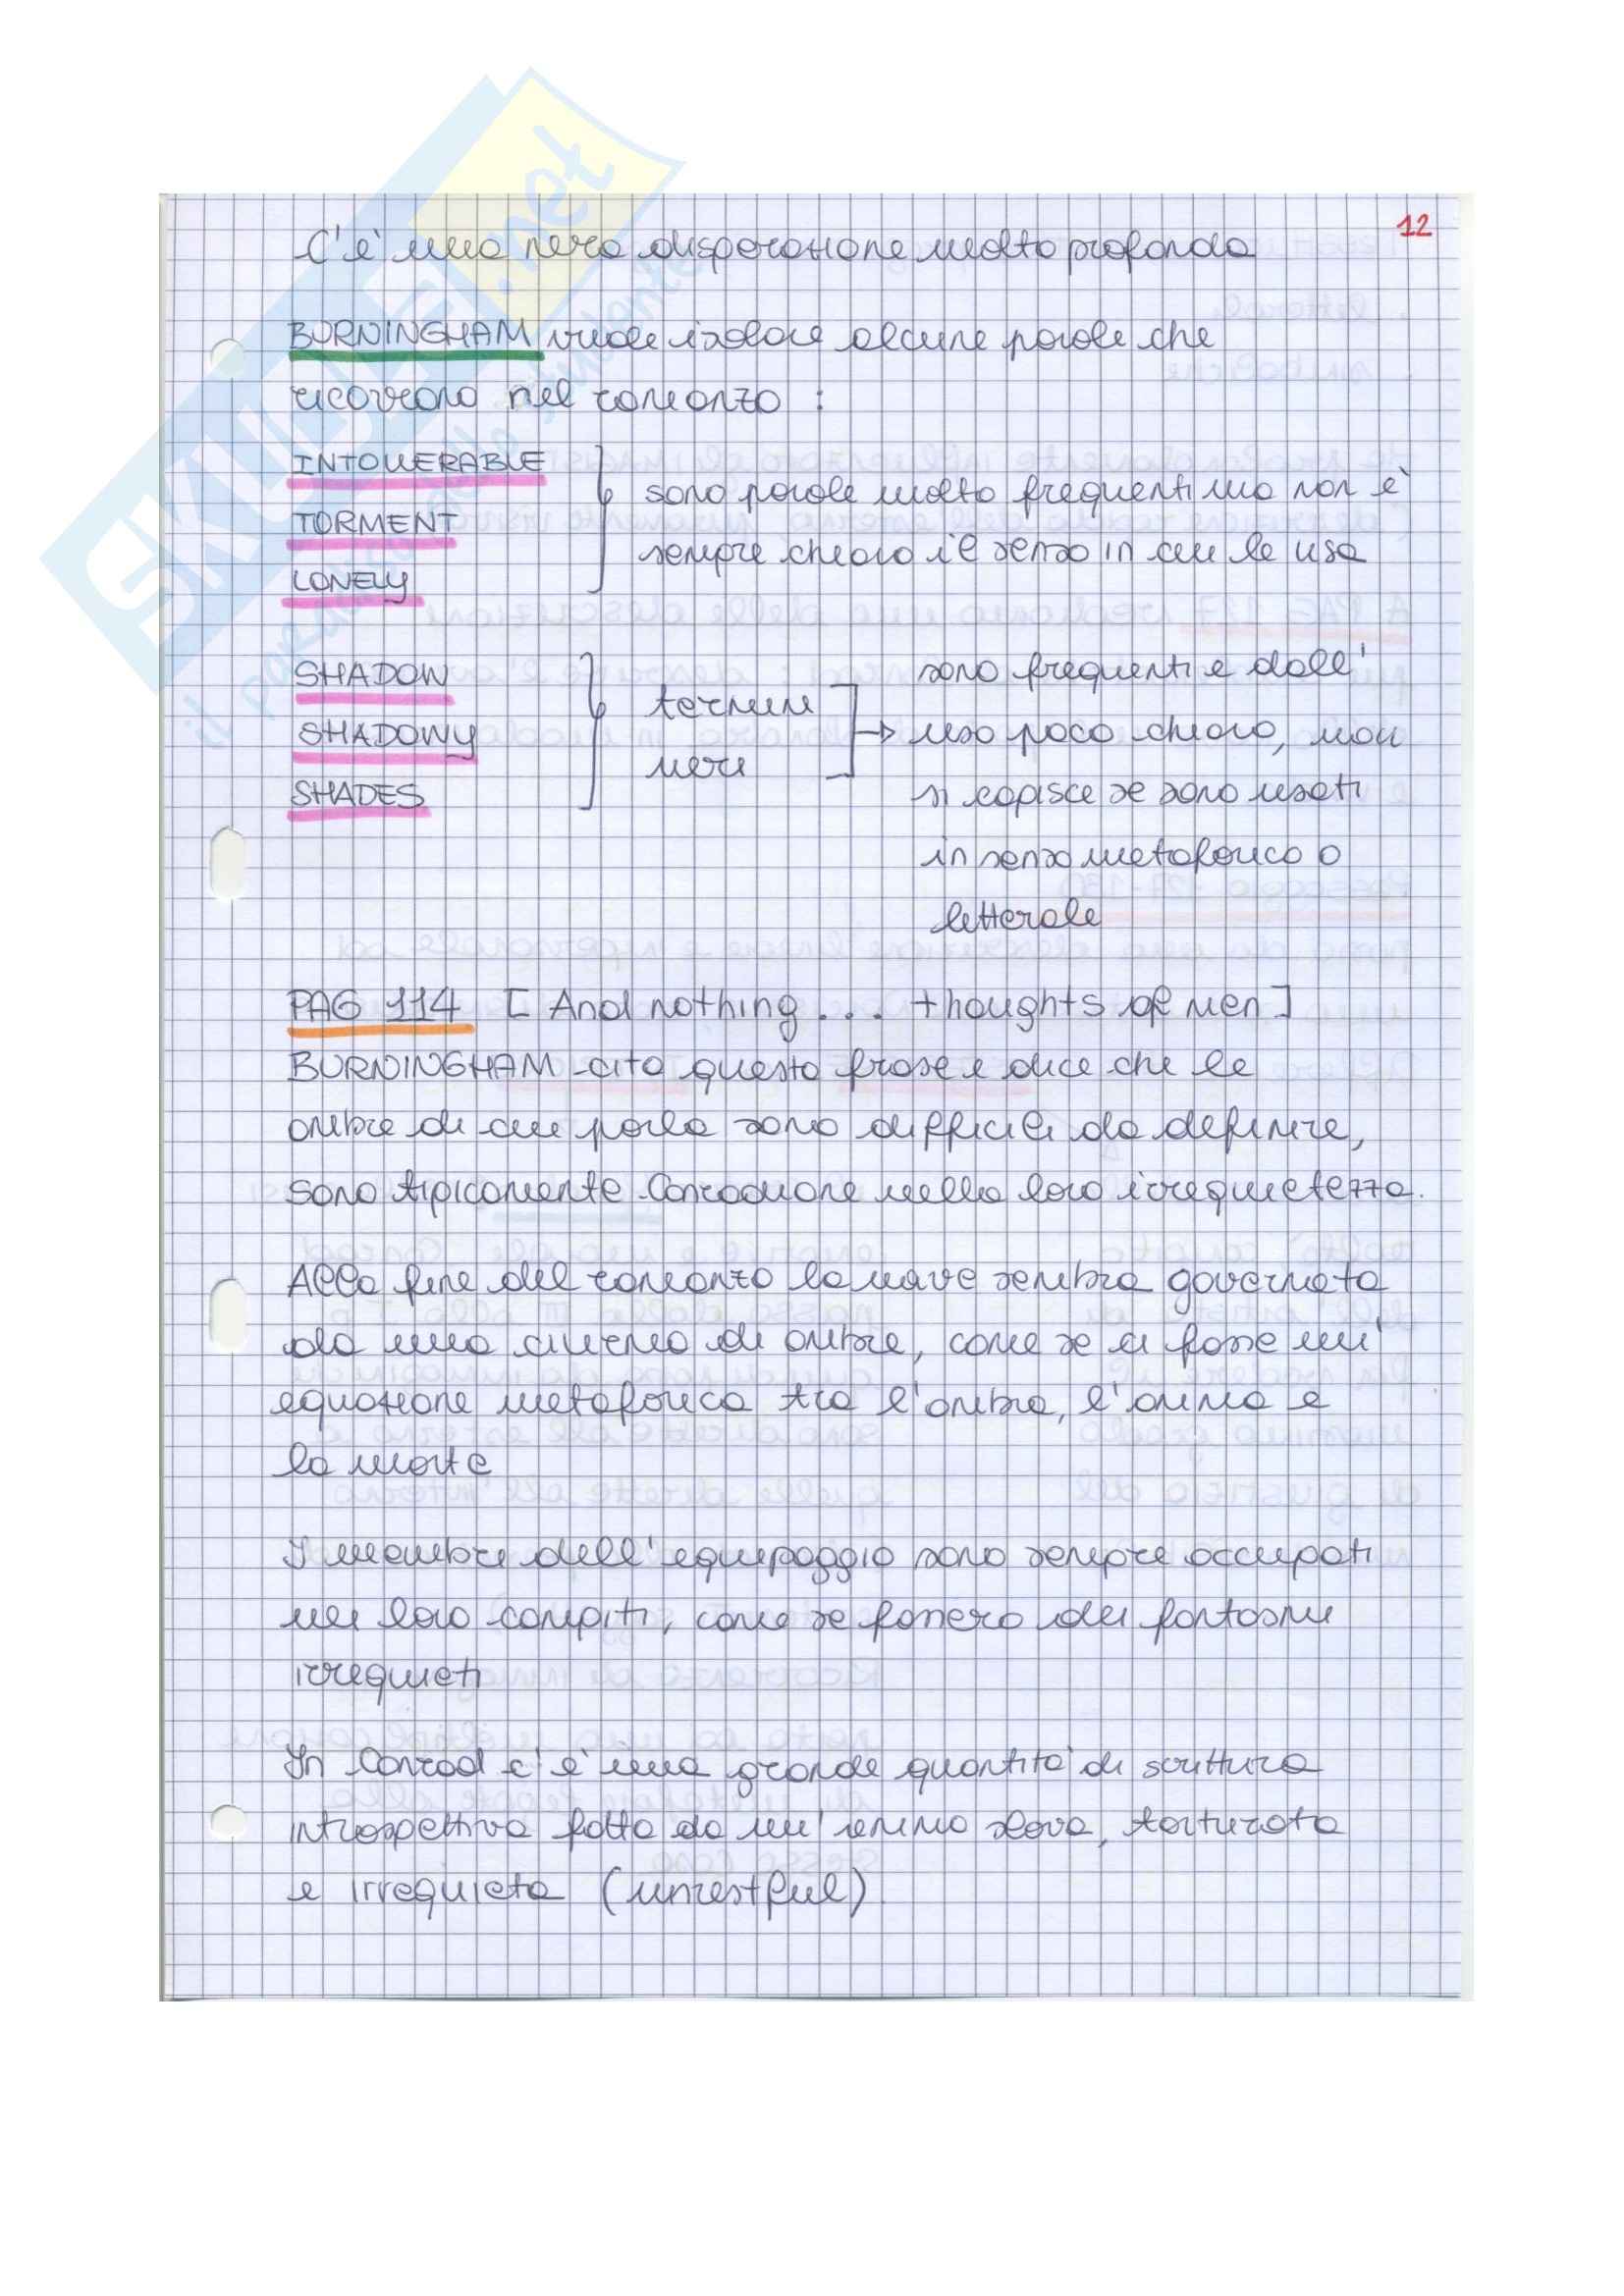 12
C'è una nera disperazione molto profonda
BURNINGHAM vuole isolare alcune parole che
ricorrono nel romanzo :
INTOLLERABLE
TORMENT
LONELY
sono parole molto frequenti ma non è
sempre chiaro il senso in cui le usa
SHADOW
SHADOWY
SHADES
termini
neri
sono frequenti e dall'
uso poco chiaro, non
si capisce se sono usati
in senso metaforico o
letterale
PAG 114 [ And nothing ... thoughts of men ]
BURNINGHAM cita questa frase e dice che le
ombre di cui parla sono difficili da definire,
sono tipicamente Conradiane nella loro irrequietezza.
Alla fine del romanzo la nave sembra governata
da una ciurma di ombre, come se ci fosse un'
equazione metaforica tra l'ombra, l'anima e
la morte
I membri dell'equipaggio sono sempre occupati
nei loro compiti, come se fossero dei fantasmi
irrequieti
In Conrad c'è una grande quantità di scrittura
introspettiva fatta da un'anima slava, torturata
e irrequieta (unrestful)
SKUOLA.net
il paradiso dello studente